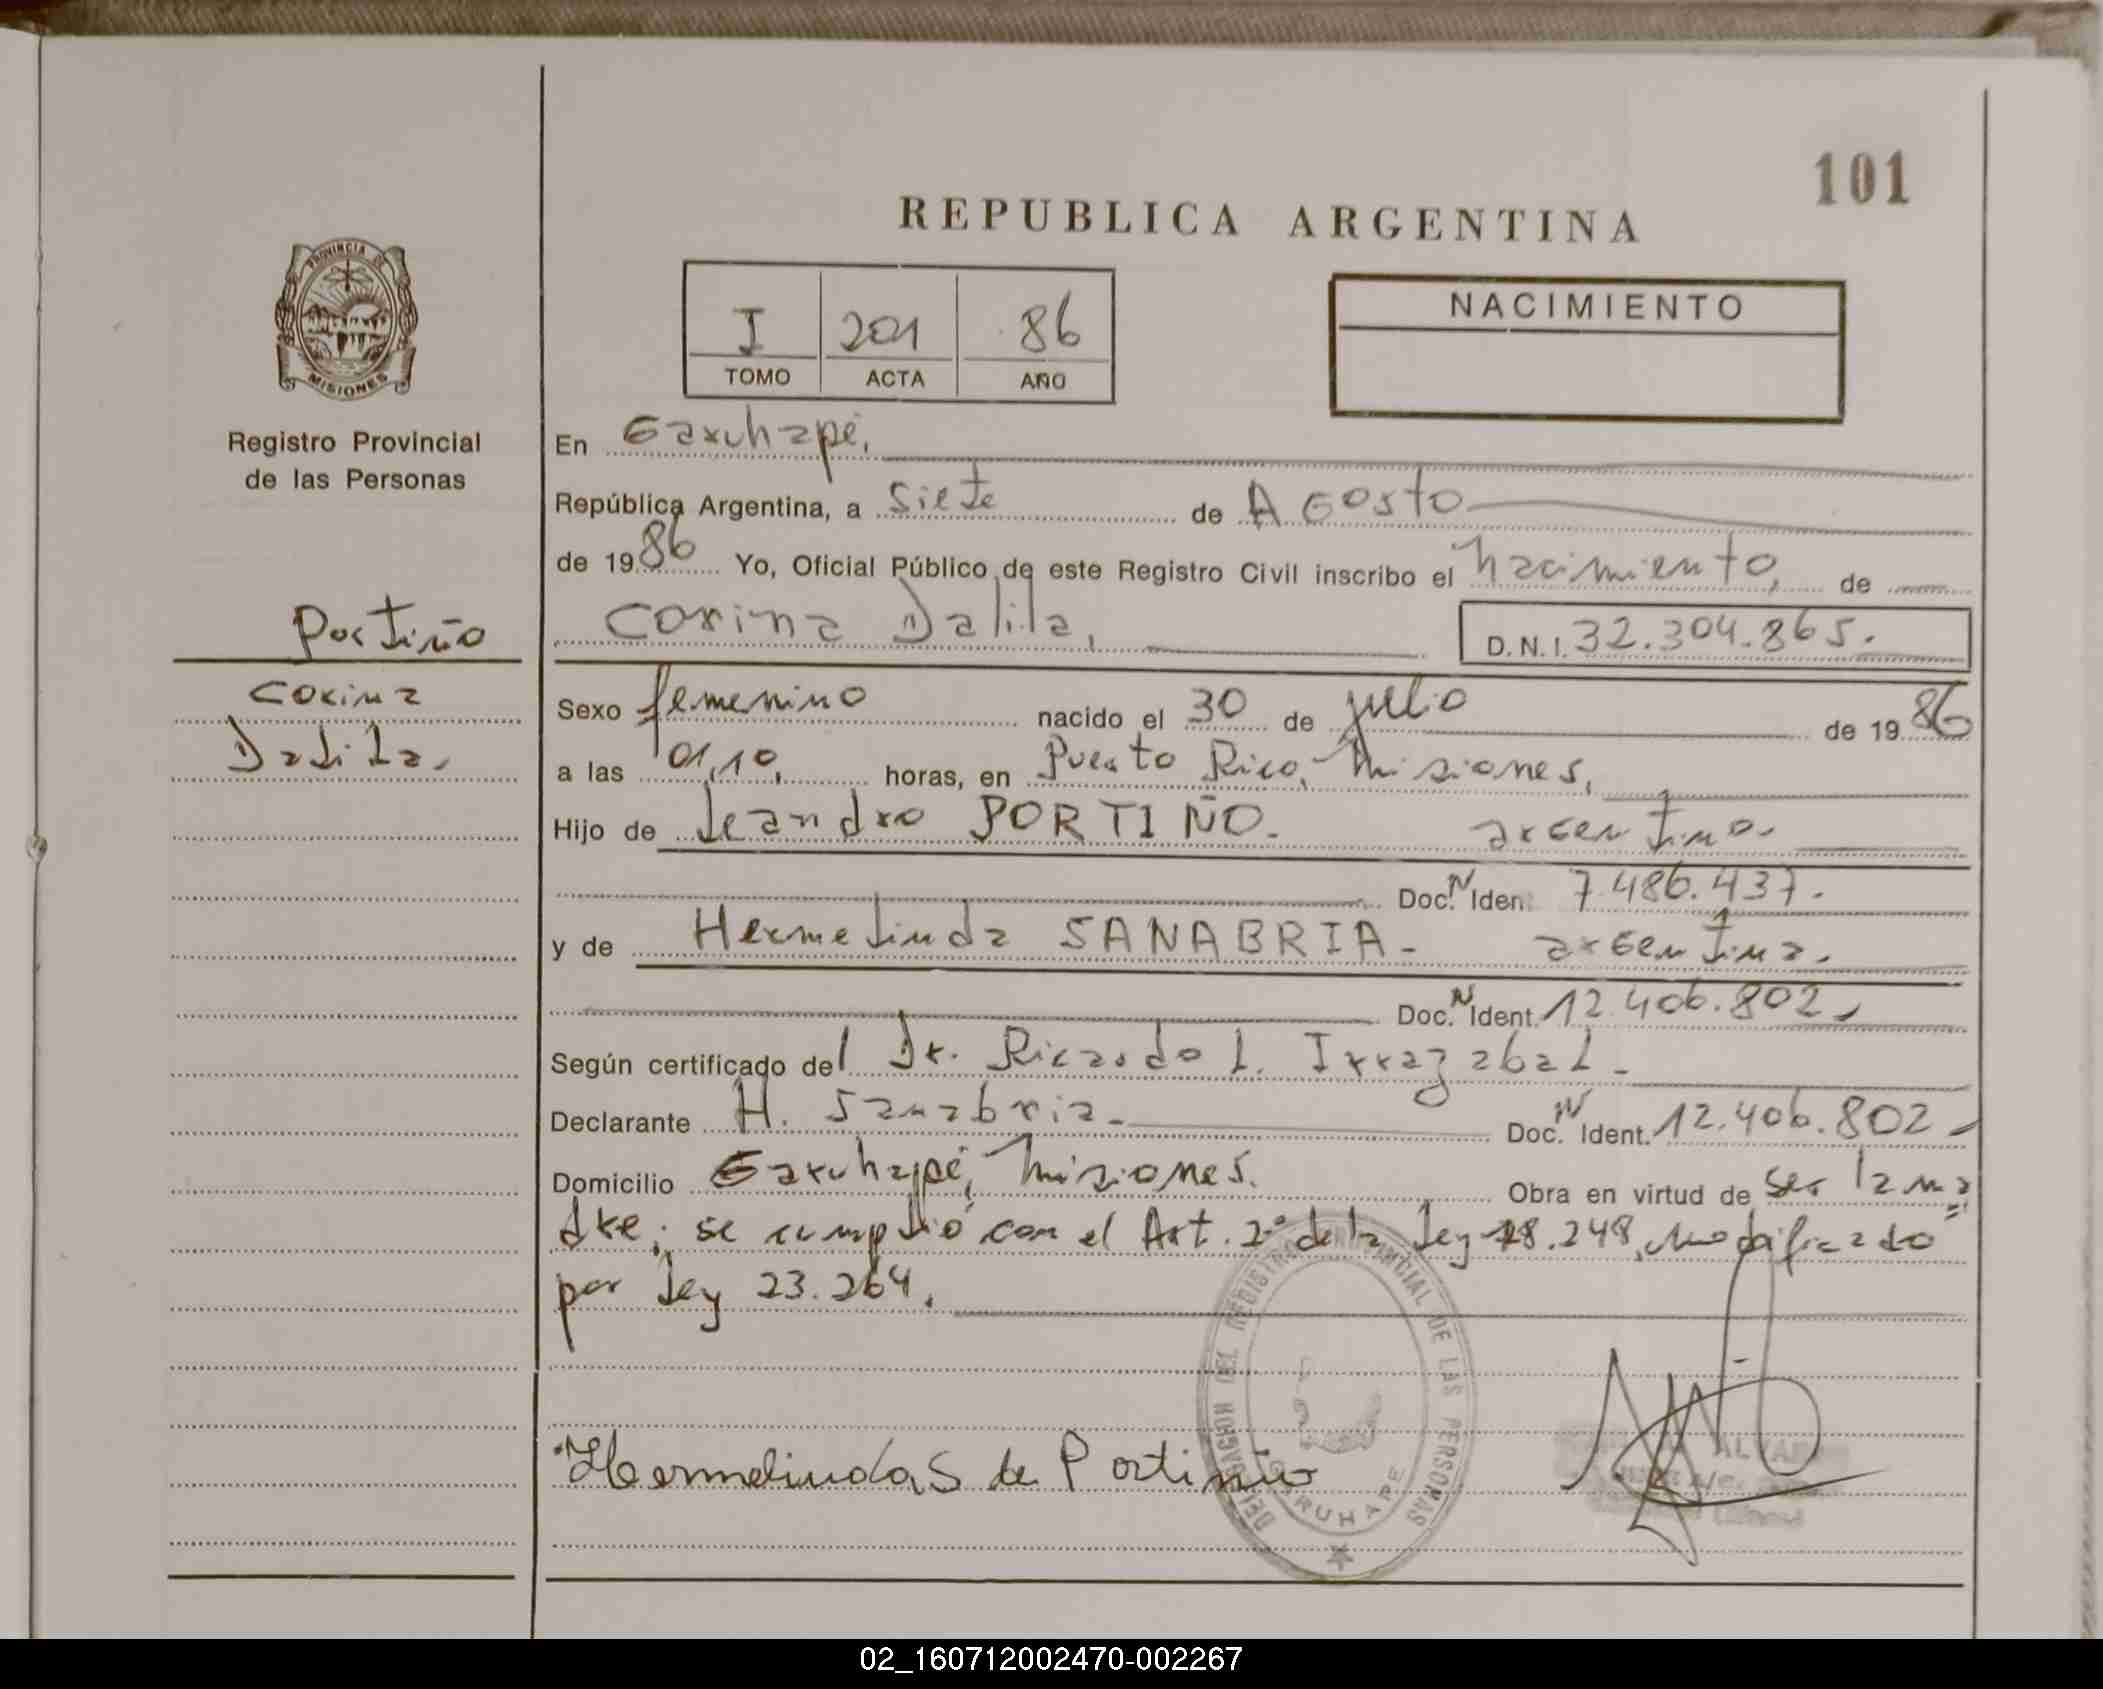 101
REPUBLICA ARGENTINA
PROVINCIA DE
MISIONES
Registro Provincial
de las Personas
I 201 86
TOMO ACTA AÑO
NACIMIENTO
En Garuhapé,
República Argentina, a siete de Agosto
de 1986 Yo, Oficial Público de este Registro Civil inscribo el nacimiento, de
Corina Dalila,
D.N.I. 32.304.865.
Portiño
Corina
Dalila.
Sexo femenino nacido el 30 de julio de 1986
a las 01,10, horas, en Puerto Rico, Misiones,
Hijo de Leandro PORTIÑO. argentino.
Doc. N Iden 7.486.437.
y de Hermelinda SANABRIA- argentina.
Doc. N Ident. 12.406.802,
Según certificado del Dr. Ricardo L. Irrazabal-
Declarante H. Sanabria- Doc. N Ident. 12.406.802,
Domicilio Garuhapé, Misiones. Obra en virtud de ser la ma
dre; se cumplió con el Art. 2º de la Ley 18.248, modificado
por Ley 23.264.
Hermelinda S de Portiño
DELEGACION DEL REGISTRO PROVINCIAL DE LAS PERSONAS
GARUHAPE
02_160712002470-002267